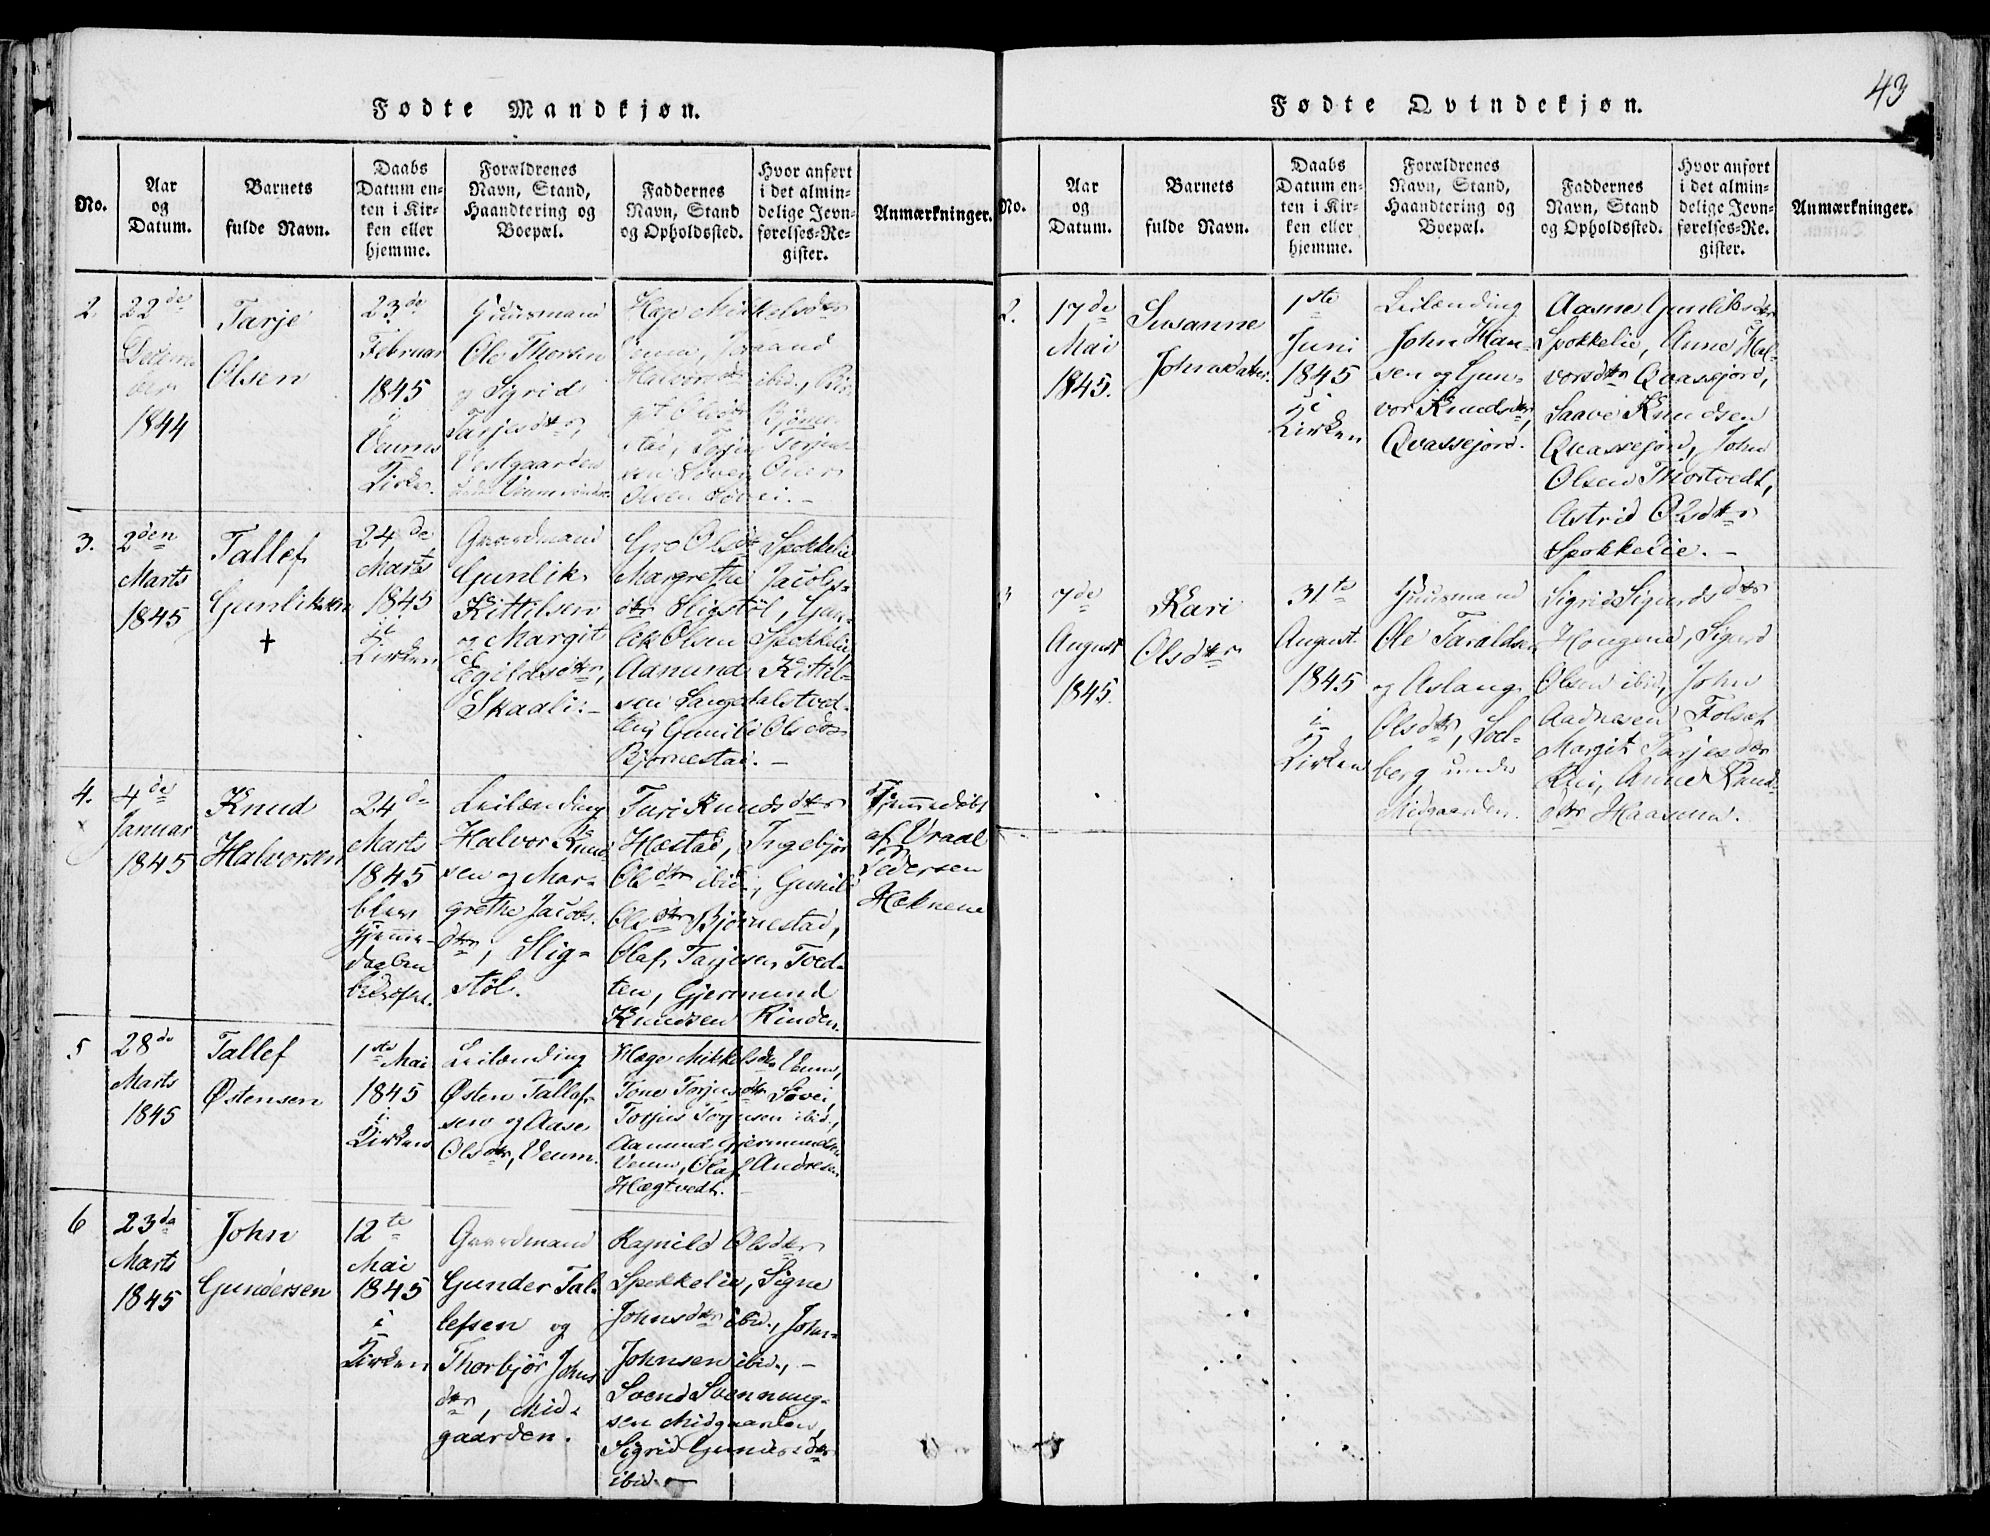 43
Fødte Mandkjøn.
No.
Aar
og
Datum.
Barnets
fulde Navn.
Daabs
Datum en-
ten i Kir-
ken eller
hjemme.
Forældrenes
Navn, Stand,
Haandtering og
Boepæl.
Faddernes
Navn, Stand
og Opholdssted.
Hvor anført
i det almin-
delige Jevn-
førelses-Re-
gister.
Anmærkninger.
2.
22de
1844
Tarje
Olsen
23de
Februar
1845
i
Veums
Kirke.
Huusmand
Ole Thorsen
og Sigrid
Tarjesdtr,
Vestgaarden
Hæge Mikkelsdtr
Halvorsdtr ibid.,
3.
2den
Marts
1845
Tallef
Gunliksen
+
24de
Marts
1845
i
Kirken
Gaardmand
Gunlik
Kittilsen
og Margit
Egildsdtr,
Skaali. –
Gro Olsdtr Spokkelie
Margrethe Jacobs-
dtr Sligstøl, Gun-
lek Olsen Spokkelie,
Aamund Kittil-
sen
Gunild Olsdtr
Bjørnestad. –
4.
x
4de
Januar
1845
Knud
Halvorsen
24de
Marts
1845
blev
Hjemme-
daaben
bekræftet.
Leilænding
Halvor Knud
sen og Mar-
grethe Jacobs-
dtr, Slig-
støl.
Turi Knudsdtr
Hæstad, Ingebjør
Olsdtr ibid., Gunild
Olsdtr Bjørnestad,
Olaf Tarjesen Tved-
ten, Gjermund
Knudsen Rinden.
Hjemmedøbt
af Vraal
Pedersen
5
28de
Marts
1845
Tallef
Østensen
1ste Mai
1845
i
Kirken
Leilænding
Østen Tallef-
sen og Aase
Olsdtr, Veum.
Hæge Mikkelsdtr Veum,
Tone Torjusdtr Løvei,
Torjus Torjusen ibid.,
Aamund Gjermundsen
Veum, Olaf Andresen
Hægtvedt.
6
23de
Marts
1845
John
Gundersen
12te
Mai
1845
i
Kirken
Gaardmand
Gunder Tal-
lefsen og
Thorbjør Johns
dtr, Mid-
gaarden.
Ragnild Olsdtr
Spokkelie, Signe
Johnsdtr ibid., John
Johnsen ibid., –
Svend Svennung-
sen Midgaarden,
Sigrid Gundersdtr
ibid. –
Fødte Qvindekjøn.
No.
Aar
og
Datum.
Barnets
fulde Navn.
Daabs
Datum en-
ten i Kir-
ken eller
hjemme.
Forældrenes
Navn, Stand,
Haandtering og
Boepæl.
Faddernes
Navn, Stand
og Opholdssted.
Hvor anført
i det almin-
delige Jevn-
førelses-Re-
gister.
Anmærkninger.
2.
17de
Mai
1845.
Susanne
Johnsdatter.
1ste
Juni
1845
i
Kirken
Leilænding
John Han-
sen og Gun-
vor Knudsdtr,
Qvassejord.
Aasne Gunliksdtr
Spokkelie, Anne Hal-
vorsdtr Qvassejord,
Saave Knudsen
Qvassejord, John
Olsen Thortvedt,
Astrid Olsdtr
Spokkelie. –
3
7de
August
1845.
Kari
Olsdtr
31te
August.
1845
i
Kirken
Huusmand
Ole Taraldsen
og Aslaug
Olsdtr, Sol-
berg under
Midgaarden.
Sigrid Sigurdsdtr
Haugene, Sigurd
Olsen ibid, John
Aadnesen Folsæ,
Margit Tarjesdtr
Anne Knud-
dtr